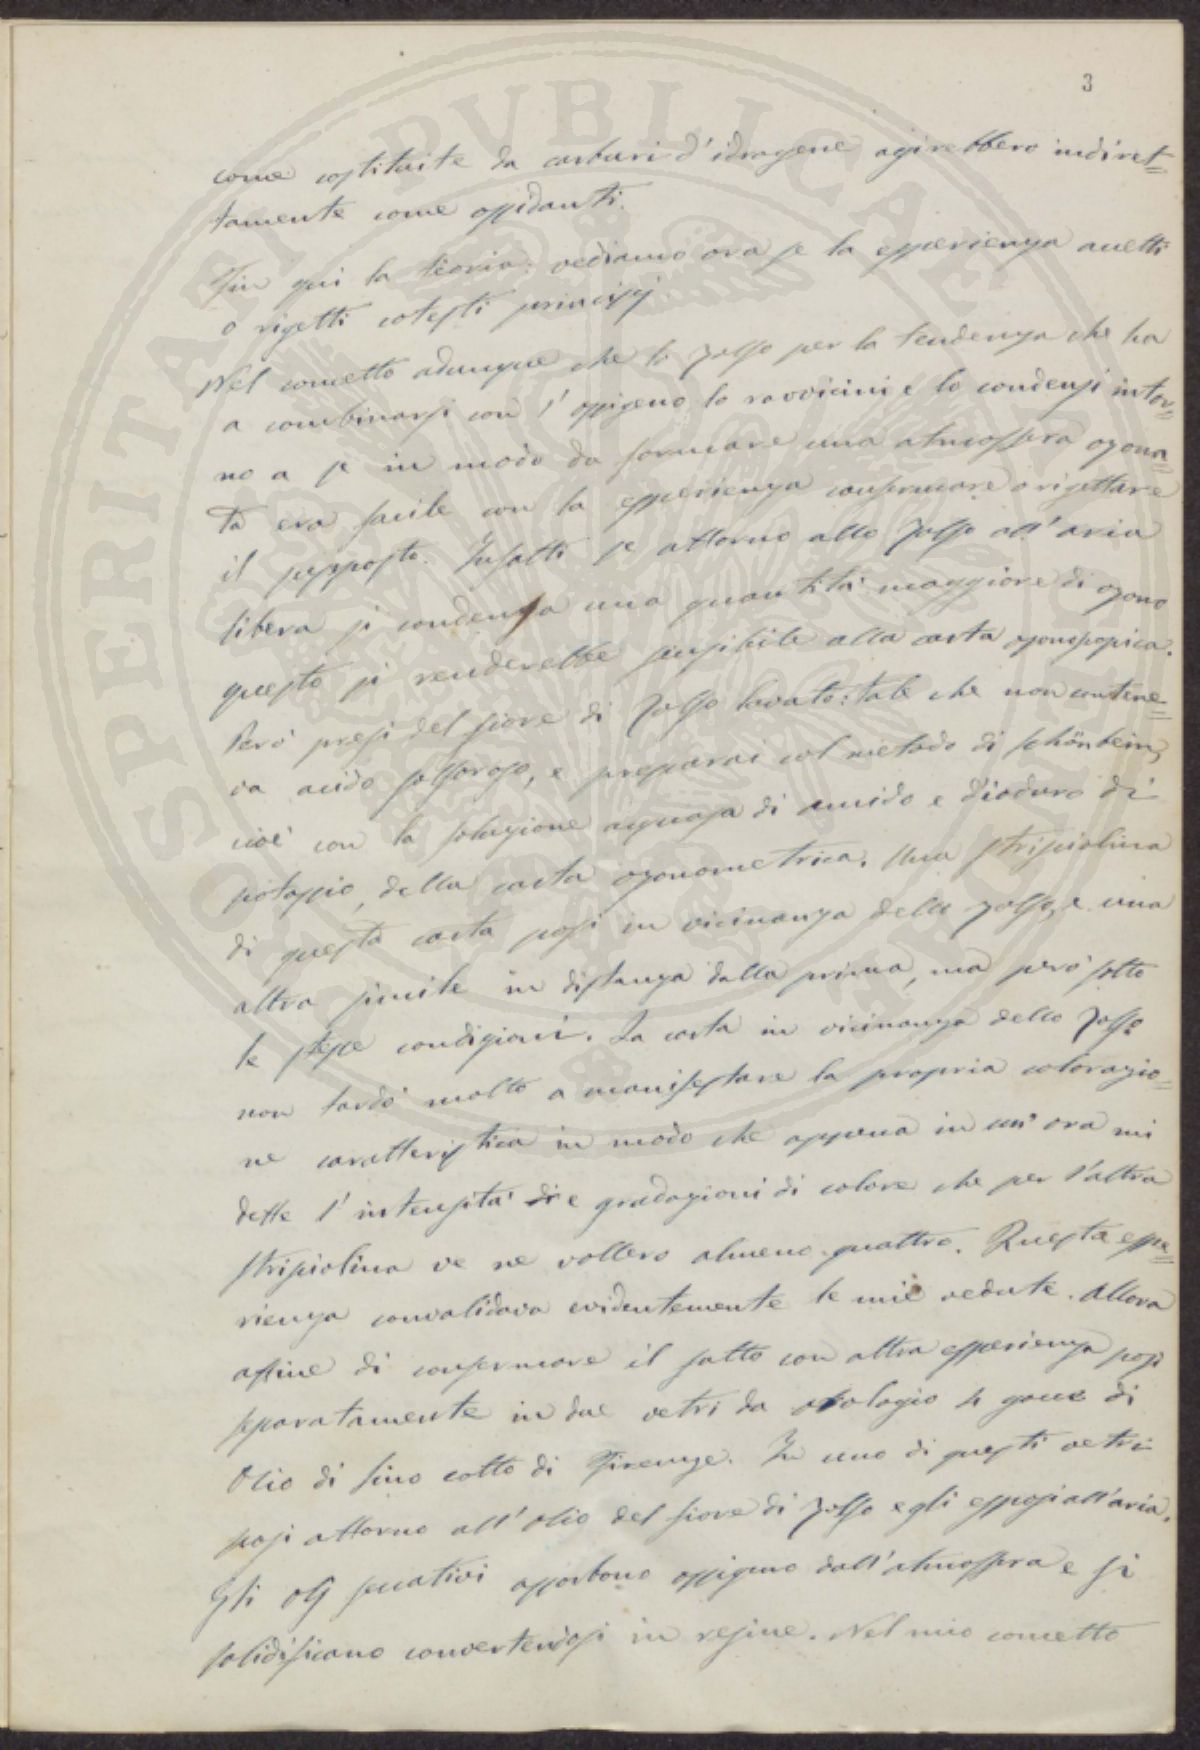 3
come costituite da carburi d'idrogene agirebbero indiret=
tamente come ossidanti.
Fin qui la teoria: vediamo ora se la esperienza ametti
o rigetti cotesti principj
Nel concetto adunque che lo zolfo per la tendenza che ha
a combinarsi con l'ossigeno lo ravvicini e lo condensi intor=
no a se in modo da formare una atmosfera ozona=
ta era facile con la esperienza confermare o rigettare
il supposto. Infatti se attorno allo zolfo all'aria
libera si condensa una quantità maggiore di ozono
questo si renderebbe sensibile alla carta ozonoscopica.
Però presi del fiore di zolfo lavato: tale che non contene=
va acido solforoso, e preparai col metodo di Schönbein,
cioè con la soluzione acquosa di amido e d'ioduro di
potassio, della carta ozonometrica. Una strisciolina
di questa carta posi in vicinanza dello zolfo, e una
altra simile in distanza dalla prima, ma però sotto
le stesse condizioni. La carta in vicinanza dello zolfo
non tardò molto a manifestare la propria colorazio=
ne caratteristica in modo che appena in un'ora mi
dette l'intensità di e gradazioni di colore che per l'altra
strisciolina ve ne vollero almeno quattro. Questa espe=
rienza convalidava evidentemente le mie vedute. Allora
affine di confermare il fatto con altra esperienza posi
separatamente in due vetri da orologio 4 gocce di
Olio di lino cotto di Firenze. In uno di questi vetri
posi attorno all'olio del fiore di zolfo e gli esposi all'aria.
Gli olj seccativi assorbono ossigeno dall'atmosfera e si
solidificano convertendosi in resine. Nel mio concetto
SOSPERITATI PVBLICAE